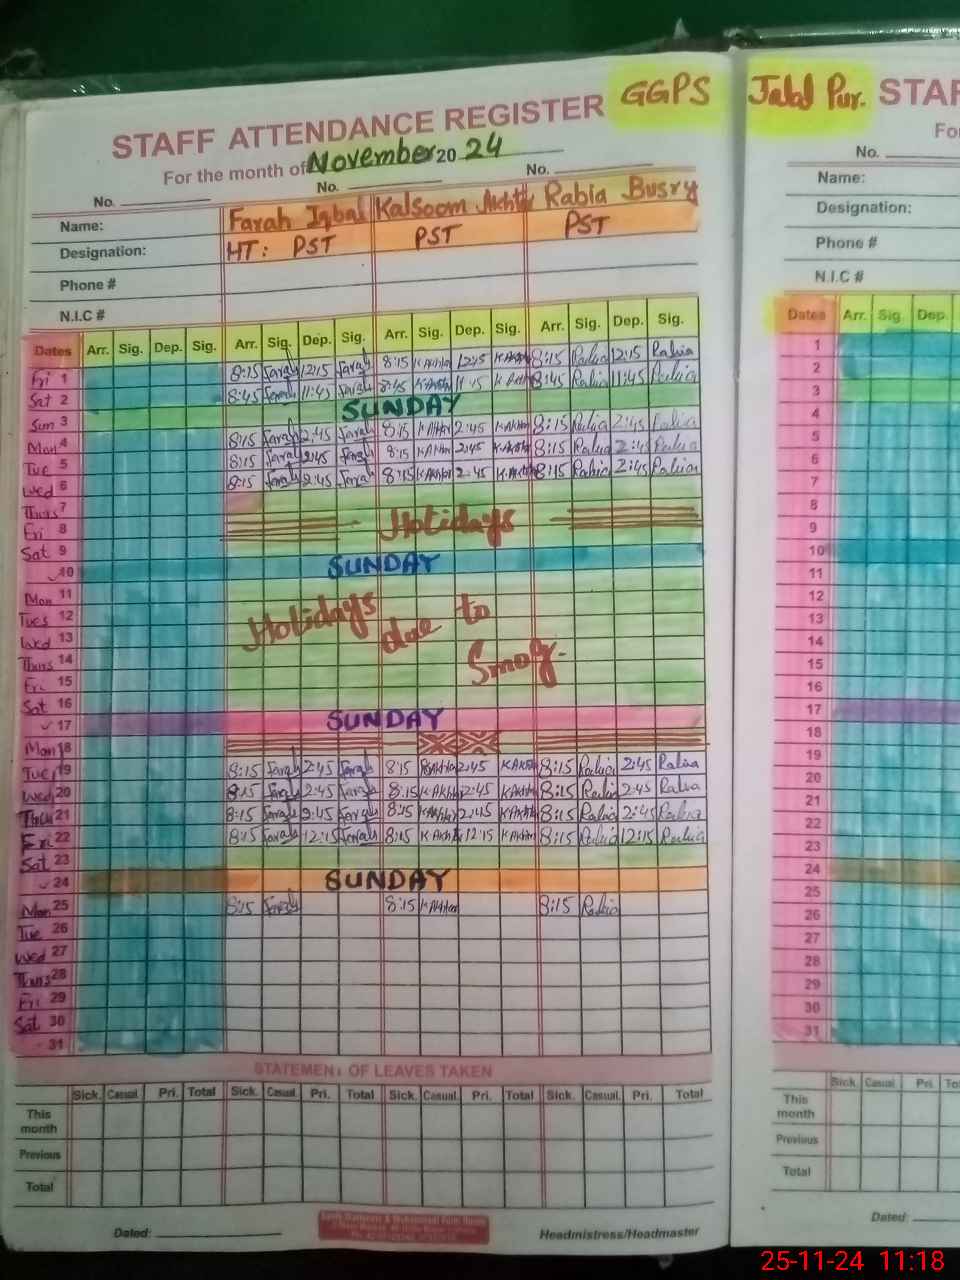 GGPS Jalal Pur.
STAFF ATTENDANCE REGISTER STAF
For the month of November 20 24 Fo
No. No. No. No.
Name: Farah Iqbal Kalsoom Akhtr Rabia Busry Name:
Designation: HT: PST PST PST Designation:
Phone # Phone #
N.I.C # N.I.C #
Dates Arr. Sig. Dep. Sig. Arr. Sig. Dep. Sig. Arr. Sig. Dep. Sig. Arr. Sig. Dep. Sig. Dates Arr. Sig. Dep.
Fri 1 8:15 Farah 12:15 Farah 8:15 K Akhtar 12:15 K Akhtar 8:15 Rabia 12:15 Rabia 1
Sat 2 8:45 Farah 11:45 Farah 8:45 K Akhtar 11:45 K Akhtar 8:45 Rabia 11:45 Rabia 2
Sun 3 SUNDAY 3
Mon 4 8:15 Farah 2:45 Farah 8:15 K Akhtar 2:45 K Akhtar 8:15 Rabia 2:45 Rabia 4
Tue 5 8:15 Farah 2:45 Farah 8:15 K Akhtar 2:45 K Akhtar 8:15 Rabia 2:45 Rabia 5
Wed 6 8:15 Farah 2:45 Farah 8:15 K Akhtar 2:45 K Akhtar 8:15 Rabia 2:45 Rabia 6
Thurs 7 7
Fri 8 Holidays 8
Sat 9 9
10 SUNDAY 10
Mon 11 11
Tues 12 Holidays due to Smog. 12
Wed 13 13
Thurs 14 14
Fri 15 15
Sat 16 16
17 SUNDAY 17
Mon 18 18
Tue 19 8:15 Farah 2:45 Farah 8:15 K Akhtar 2:45 K Akhtar 8:15 Rabia 2:45 Rabia 19
Wed 20 8:15 Farah 2:45 Farah 8:15 K Akhtar 2:45 K Akhtar 8:15 Rabia 2:45 Rabia 20
Thu 21 8:15 Farah 2:45 Farah 8:15 K Akhtar 2:45 K Akhtar 8:15 Rabia 2:45 Rabia 21
Fri 22 8:15 Farah 12:15 Farah 8:15 K Akhtar 12:15 K Akhtar 8:15 Rabia 12:15 Rabia 22
Sat 23 23
24 SUNDAY 24
Mon 25 8:15 Farah 8:15 K Akhtar 8:15 Rabia 25
Tue 26 26
Wed 27 27
Thurs 28 28
Fri 29 29
Sat 30 30
31 31
STATEMENT OF LEAVES TAKEN
Sick. Casual. Pri. Total Sick. Casual. Pri. Total Sick. Casual. Pri. Total Sick. Casual. Pri. Total Sick. Casual. Pri. To
This month This month
Previous Previous
Total Total
Dated: Headmistress/Headmaster Dated:
25-11-24 11:18